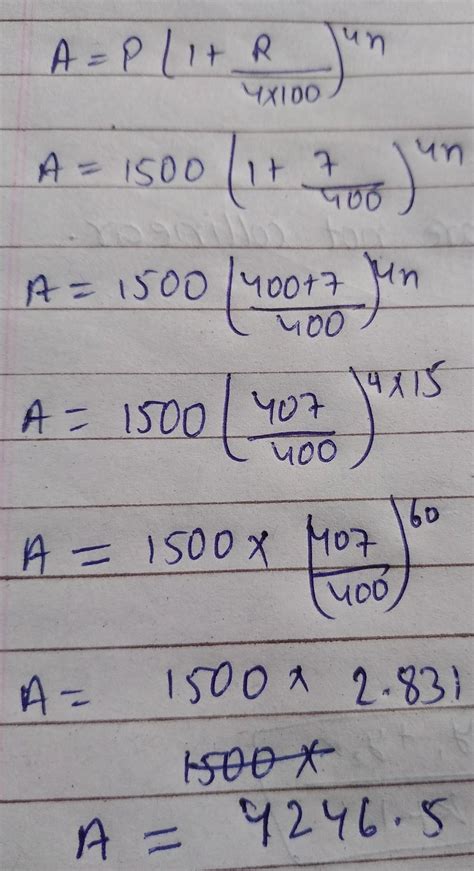 A = P (1 + R/4×100)^4n
A = 1500 (1 + 7/400)^4n
A = 1500 (400+7/400)^4n
A = 1500 (407/400)^4×15
A = 1500 × (407/400)^60
A = 1500 × 2.831
1500 ×
A = 4246.5